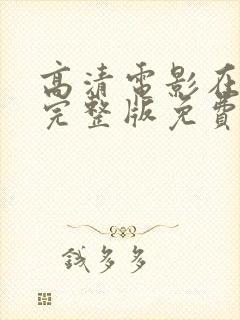 高清電影在
完整版免費
錢多多